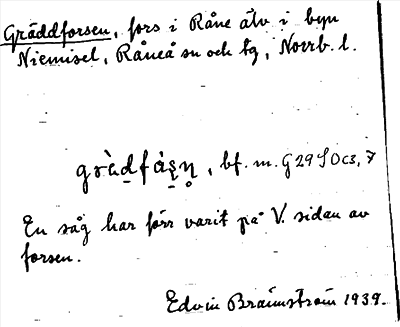 Gräddforsen, fors i Råne älv i byn
Niemisel, Råneå sn och tg, Norrb. l.
gràd̲fàs̨n̥, bf. m. G 29 S Ocs, 7
En såg har förr varit på V. sidan av
forsen.
Edvin Brännström 1939.